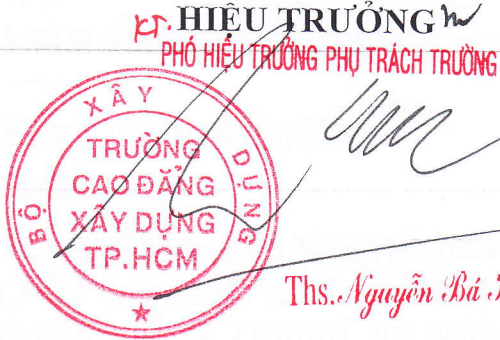 KT. HIỆU TRƯỞNG
PHÓ HIỆU TRƯỞNG PHỤ TRÁCH TRƯỜNG
BỘ XÂY DỰNG
TRƯỜNG
CAO ĐẲNG
XÂY DỰNG
TP.HCM
Ths. Nguyễn Bá